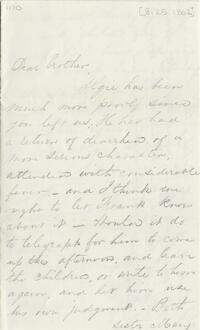 1110
[8-25-1862]
Dear brother,
Algie has been
much more poorly since
you left us. He has had
a return of diarrhea, of a
more serious character,
attended with considerable
fever - and I think we
ought to let Frank know
about it - Would it do
to telegraph for him to come
up this afternoon, and leave
the children, or write to him
again, and let him use
his own judgment. - Both
Sister Mary